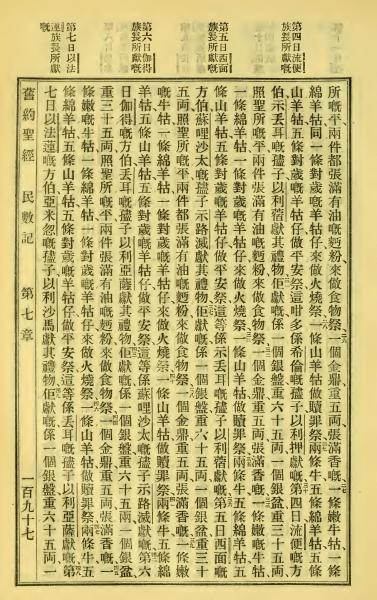 第四日流便
族長所獻嘅
第五日西面
族長所獻嘅
第六日伽得
族長所獻嘅
第七日以法
蓮族長所獻
嘅
所嘅平兩件都張滿有油嘅麪粉來做食物祭、一個金鼎重五両張滿香嘅、一條嫩牛牯一條
綿羊牯同一條對歲嘅羊牯仔來做火燒祭、一條山羊牯做贖罪祭、兩條牛五條綿羊牯五條
山羊牯五條對歲嘅羊牯仔做平安祭這咁多係希倫嘅孻子以利押獻嘅第四日流便嘅方
伯示丟耳嘅孻子以利蓿獻其禮物佢獻嘅係一個銀盤重六十五両一個銀盆重三十五両、
照聖所嘅平兩件張滿有油嘅麪粉來做食物祭、一個金鼎重五両張滿香嘅、一條嫩嘅牛牯
一條綿羊牯一條對歲嘅羊牯仔來做火燒祭、一條山羊牯做贖罪祭兩條牛五條綿羊牯五
條山羊牯五條對歲嘅羊牯仔做平安祭這等係示丟耳嘅孻子以利蓿獻嘅第五日西面嘅
方伯蘇哩沙太嘅孻子示路滅獻其禮物佢獻嘅係一個銀盤重六十五両一個銀盆重三十
五両照聖所嘅平兩件都張滿有油嘅麪粉來做食物祭、一個金鼎重五両張滿香嘅、一條嫩
嘅牛牯一條綿羊牯一條對歲嘅羊牯仔來做火燒祭一條山羊牯做贖罪祭兩條牛五條綿
羊牯五條山羊牯五條對歲嘅羊牯仔做平安祭這等係蘇哩沙太嘅孻子示路滅獻嘅第六
日伽得嘅方伯丟耳嘅孻子以利亞薩獻其禮物佢獻嘅係一個銀盤重六十五両一個銀盆
重三十五両照聖所嘅平兩件張滿有油嘅麪粉來做食物祭一個金鼎重五両張滿香嘅一
條嫩嘅牛牯一條綿羊牯一條對歲嘅羊牯仔來做火燒祭一條山羊牯做贖罪祭兩條牛五
條綿羊牯五條山羊牯五條對歲嘅羊牯仔做平安祭這等係丟耳嘅孻子以利亞薩獻嘅第
七日以法蓮嘅方伯亞米忽嘅孻子以利沙馬獻其禮物佢獻嘅係一個銀盤重六十五両一
舊約聖經 民數記 第七章 一百九十七